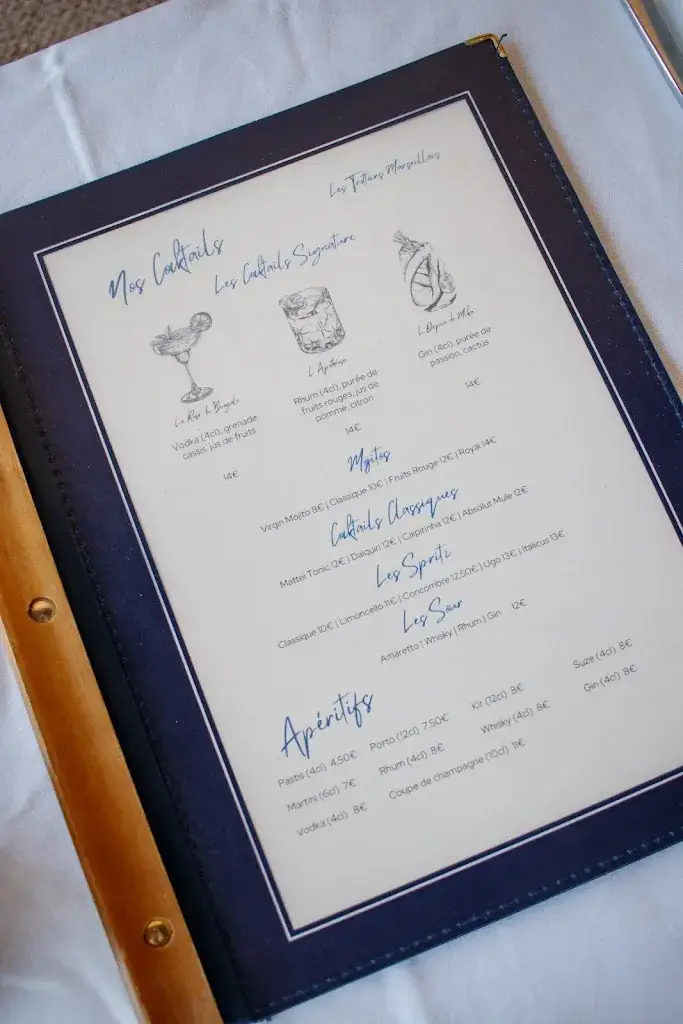 Les Trottoirs Marseillais
Nos Cocktails
Les Cocktails Signature
La Rose du Bengale
Vodka (4cl), grenade
cassis, jus de fruits
14€
L'Apothéose
Rhum (4cl), purée de
fruits rouges, jus de
pomme, citron
14€
Gin (4cl), purée de
passion, cactus
14€
Mojitos
Virgin Mojito 8€ | Classique 10€ | Fruits Rouge 12€ | Royal 14€
Cocktails Classiques
Mattei Tonic 12€ | Daïquiri 12€ | Caïpirinha 12€ | Absolut Mule 12€
Les Spritz
Classique 10€ | Limoncello 11€ | Concombre 12.50€ | Ugo 13€ | Italicus 13€
Les Sour
Amaretto | Whisky | Rhum | Gin 12€
Apéritifs
Pastis (4cl) 4,50€ Porto (12cl) 7,50€ Kir (12cl) 8€ Suze (4cl) 8€
Martini (6cl) 7€ Rhum (4cl) 8€ Whisky (4cl) 8€ Gin (4cl) 8€
Vodka (4cl) 8€ Coupe de champagne (10cl) 11€